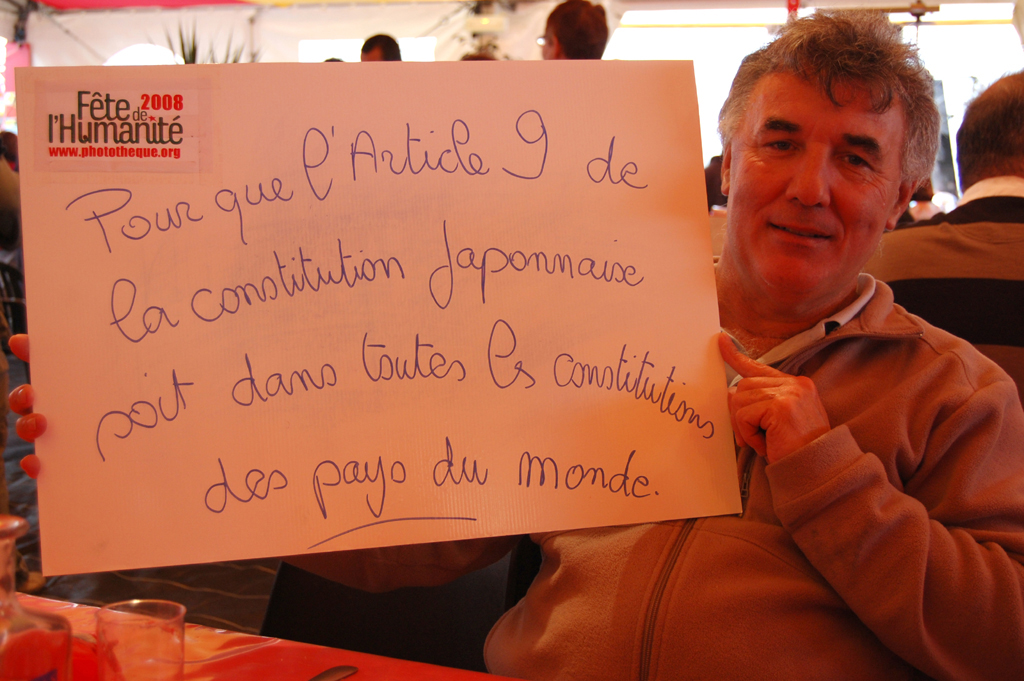 Fête de 2008
l'Humanité
www.phototheque.org
Pour que l'Article 9 de
la constitution Japonnaise
soit dans toutes les constitutions
des pays du monde.